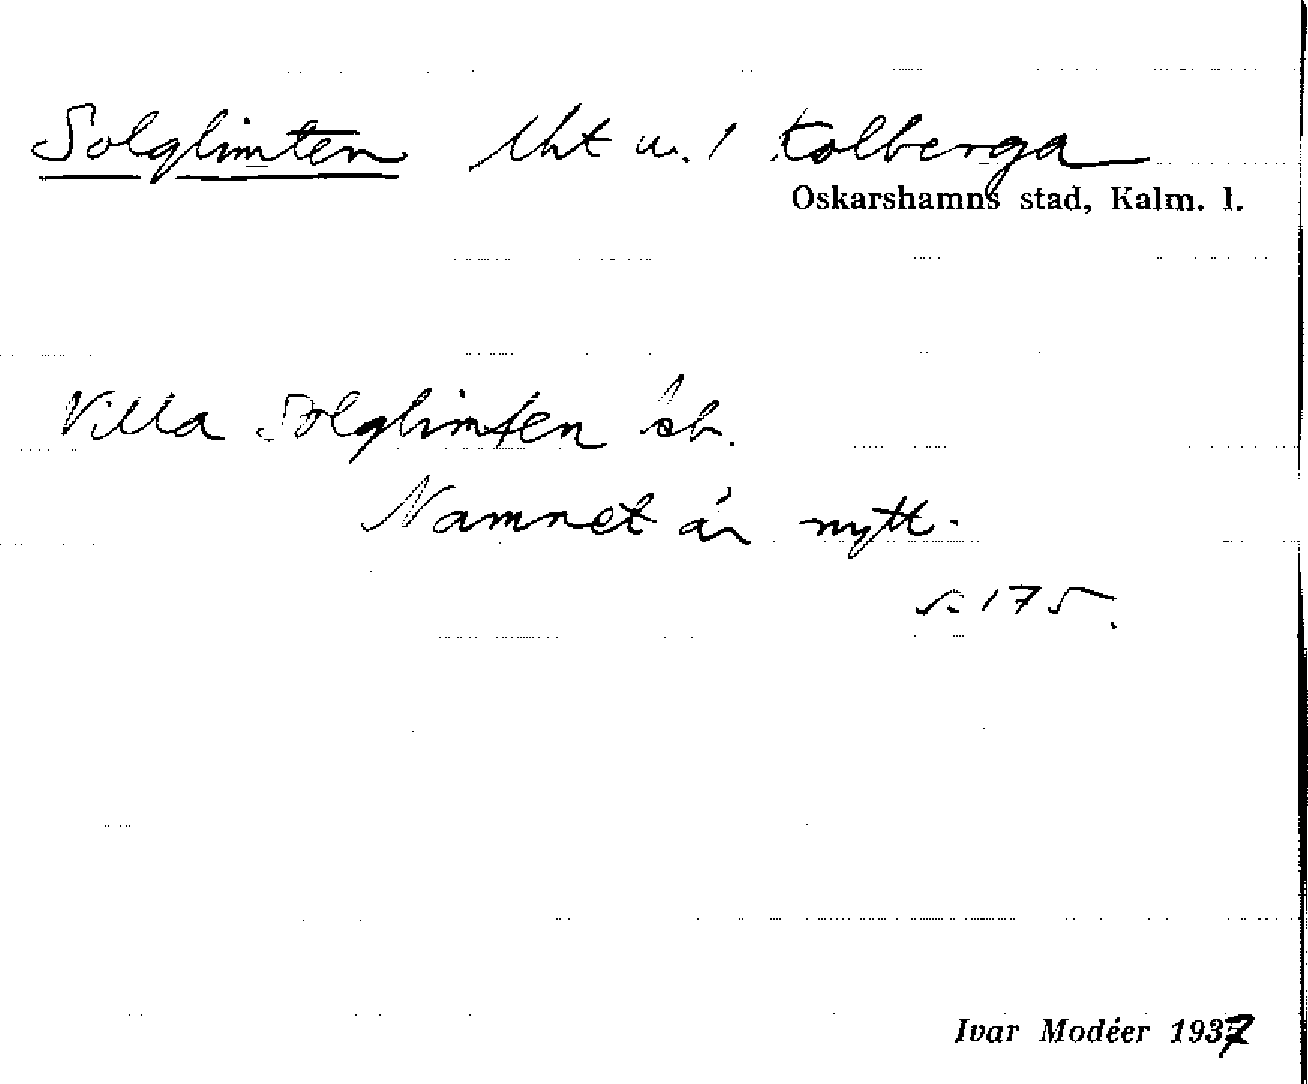 Solglimten lht u. / Kolberga
Oskarshamns stad, Kalm. l.
Villa Solglimten åb.
Namnet är nytt.
s. 175.
Ivar Modéer 1937